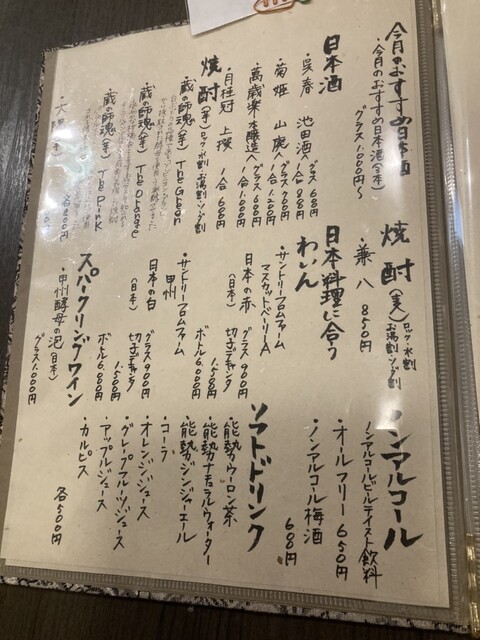 今月のおすすめ日本酒
・今月のおすすめ日本酒(全本)
グラス1.000円〜
日本酒
・呉春 池田酒
グラス680円
一合 980円
・菊姫 山廃
グラス900円
一合1.200円
・萬歳楽 本醸造
グラス600円
一合1.000円
・月桂冠 上撰 一合 600円
焼酎(芋)ロック・水割 お湯割・ソーダ割
・蔵の師魂(芋) The Green
・蔵の師魂(芋) The Orange
・蔵の師魂(芋) The Pink
各800円
焼酎(麦)ロック・水割 お湯割・ソーダ割
・兼八 850円
日本料理に合う
わいん
・サントリーフロムファーム
マスカットベリーA
日本の赤 グラス900円
(日本) 切子デキャンタ
1.500円
ボトル6.000円
・サントリーフロムファーム
甲州
日本の白 グラス900円
(日本) 切子デキャンタ
1.500円
ボトル6.000円
スパークリングワイン
・甲州酵母の泡(日本)
グラス1.000円
ノンアルコール
ノンアルコールビールテイスト飲料
・オールフリー 650円
・ノンアルコール梅酒
680円
ソフトドリンク
・能勢ウーロン茶
・能勢ナチュラルウォーター
・能勢ジンジャーエール
・コーラ
・オレンジジュース
・グレープフルーツジュース
・アップルジュース
・カルピス
各500円